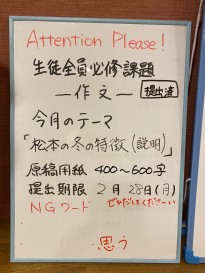 Attention Please!
生徒全員必修課題
―作文― 提出済
今月のテーマ
「松本の冬の特徴(説明)」
原稿用紙 400〜600字
提出期限 2月28日(月)
NGワード ぜひだしてくださーい
思う